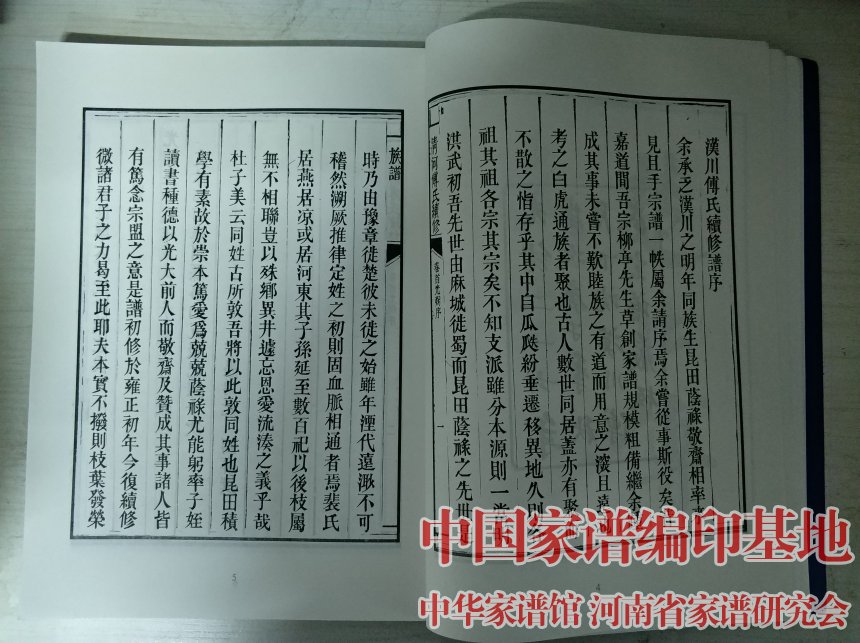 漢川傅氏續修譜序
余承乏漢川之明年同族生昆田蔭祿敬齋相率
見且手宗譜一帙屬余請序焉余嘗從事斯役矣
嘉道間吾宗柳亭先生草創家譜規模粗備繼余
成其事未嘗不歎睦族之有道而用意之深且遠
考之白虎通族者聚也古人數世同居蓋亦有聚
不散之恉存乎其中自瓜瓞紛垂遷移異地久則
祖其祖各宗其宗矣不知支派雖分本源則一
洪武初吾先世由麻城徙蜀而昆田蔭祿之先世
清河傅氏續修
族譜
卷首
序
一
時乃由豫章徙楚彼未徙之始雖年湮代遠渺不可
稽然溯厥推律定姓之初則固血脈相通者焉裴氏
居燕居凉或居河東其子孫延至數百祀以後枝屬
無不相聯豈以殊鄉異井遽忘恩愛流湊之義乎哉
杜子美云同姓古所敦吾將以此敦同姓也昆田積
學有素故於崇本篤愛爲兢兢蔭祿尤能躬率子姪
讀書種德以光大前人而敬齋及贊成其事諸人皆
有篤念宗盟之意是譜初修於雍正初年今復續修
微諸君子之力曷至此耶夫本實不撥則枝葉發榮
4
5
中国家谱编印基地
中华家谱馆 河南省家谱研究会